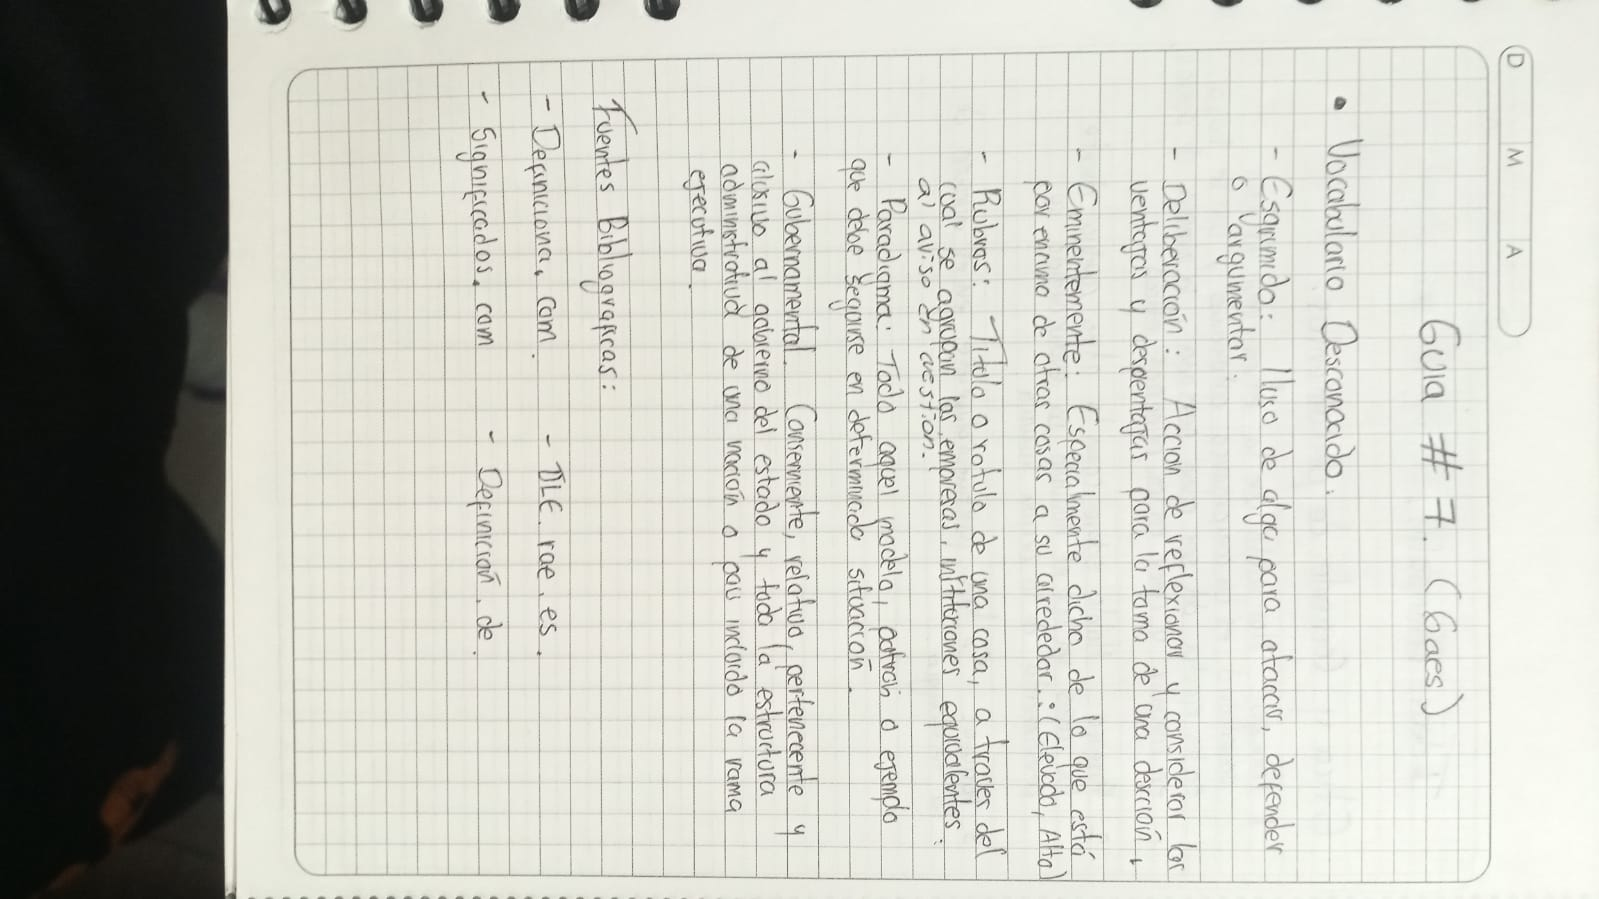 D M A
Guia # 7. (Gaes)
• Vocabulario Desconocido.
- Esgrimido: Iluso de algo para atacar, defender
o argumentar.
- Deliberación: Accion de reflexionar y considerar las
ventagas y desventajas para la toma de una decicion,
- Eminentemente: Especialmente dicho de lo que está
por encima de otras cosas a su alrededor. (Elevado, Alto)
- Rubros: Titulo o rotulo de una cosa, a traves del
cual se agrupan las empresas, intituciones equivalentes.
al aviso en cuestion.
- Paradigma: Todo aquel modelo, patron o ejemplo
que debe seguirse en determinado situación.
- Gubernamental. Conserniente, relativo, pertenecente y
alusivo al gobierno del estado y toda la estructura
administrativa de una nación o pau incluido la rama
ejecutiva.
Fuentes Bibliograficas:
- Definiciona. com. - DLE. rae. es.
- Significados. com - Definicion. de.